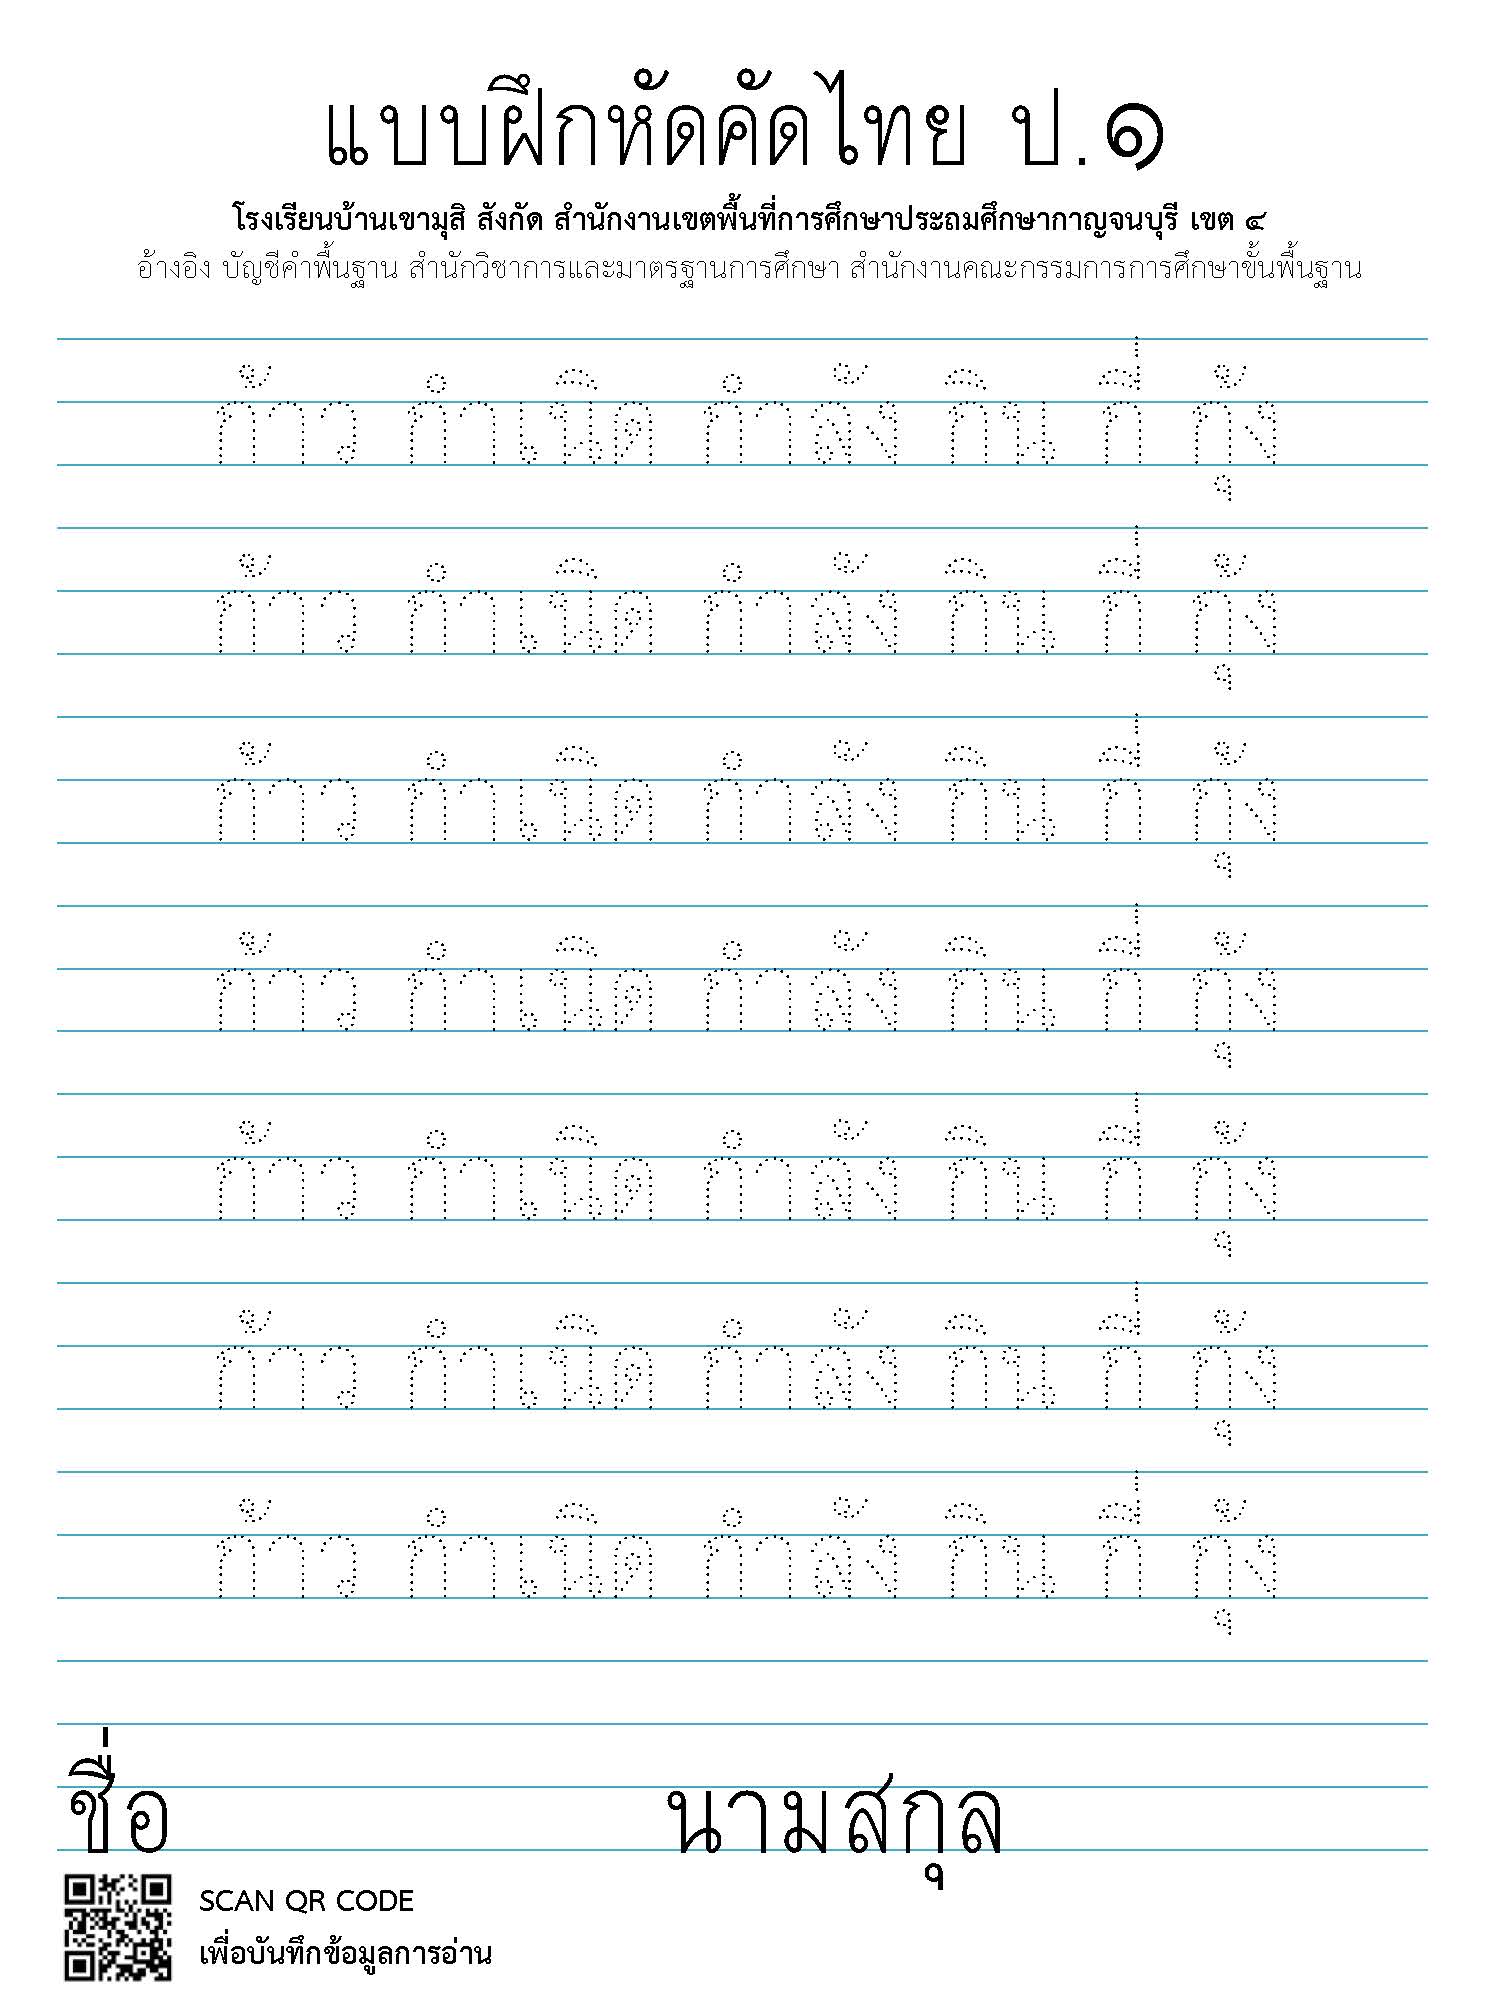 แบบฝึกหัดคัดไทย ป.๑
โรงเรียนบ้านเขามุสิ สังกัด สำนักงานเขตพื้นที่การศึกษาประถมศึกษากาญจนบุรี เขต ๔
อ้างอิง บัญชีคำพื้นฐาน สำนักวิชาการและมาตรฐานการศึกษา สำนักงานคณะกรรมการการศึกษาขั้นพื้นฐาน
ก้าว กำเนิด กำลัง กิน กี่ กุ้ง
ก้าว กำเนิด กำลัง กิน กี่ กุ้ง
ก้าว กำเนิด กำลัง กิน กี่ กุ้ง
ก้าว กำเนิด กำลัง กิน กี่ กุ้ง
ก้าว กำเนิด กำลัง กิน กี่ กุ้ง
ก้าว กำเนิด กำลัง กิน กี่ กุ้ง
ก้าว กำเนิด กำลัง กิน กี่ กุ้ง
ชื่อ นามสกุล
SCAN QR CODE
เพื่อบันทึกข้อมูลการอ่าน